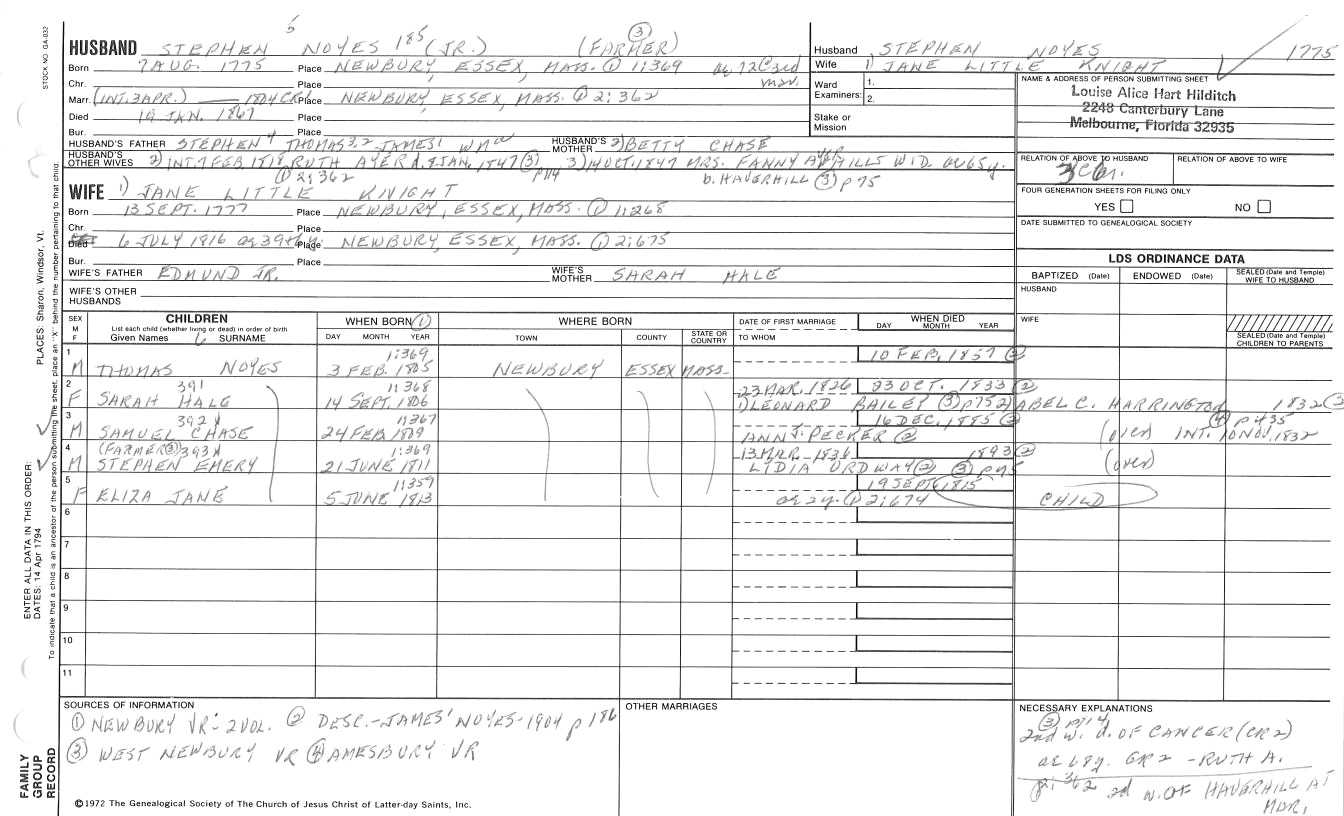 5
HUSBAND STEPHEN NOYES 185 (JR.) (FARMER) ③
Born 7 AUG. 1775 Place NEWBURY, ESSEX, MASS. ① 1:369
Chr. Place
Marr. (INT. 3 APR.) 1804 CR1 Place NEWBURY, ESSEX, MASS. ① 2:362
Died 19 JAN. 1867 Place
Bur. Place
HUSBAND'S FATHER STEPHEN 4 THOMAS 3,2 JAMES 1 HUSBAND'S MOTHER 2) BETTY CHASE
HUSBAND'S OTHER WIVES 2) INT. 7 FEB. RUTH AYER d. 8 JAN. 1847 ③ 3) 1847 MRS. FANNY HILLS WID. 65y
① 2:362 p114 b. HAVERHILL ③ p 75
WIFE 1) JANE LITTLE KNIGHT
Born 13 SEPT. 1777 Place NEWBURY, ESSEX, MASS. ① 1:268
Chr. Place
Died 6 JULY 1816 Place NEWBURY, ESSEX, MASS. ① 2:675
Bur. Place
WIFE'S FATHER EDMUND JR. WIFE'S MOTHER SARAH HALE
WIFE'S OTHER HUSBANDS
Husband STEPHEN NOYES 1775
Wife 1) JANE LITTLE KNIGHT
Ward 1.
Examiners: 2.
Stake or Mission
NAME & ADDRESS OF PERSON SUBMITTING SHEET
Louise Alice Hart Hilditch
2248 Canterbury Lane
Melbourne, Florida 32935
RELATION OF ABOVE TO HUSBAND RELATION OF ABOVE TO WIFE
FOUR GENERATION SHEETS FOR FILING ONLY
YES NO
DATE SUBMITTED TO GENEALOGICAL SOCIETY
LDS ORDINANCE DATA
BAPTIZED (Date) ENDOWED (Date) SEALED (Date and Temple) WIFE TO HUSBAND
HUSBAND
WIFE
SEALED (Date and Temple) CHILDREN TO PARENTS
SEX M F CHILDREN WHEN BORN ① WHERE BORN DATE OF FIRST MARRIAGE WHEN DIED
List each child (whether living or dead) in order of birth
Given Names 6 SURNAME DAY MONTH YEAR TOWN COUNTY STATE OR COUNTRY TO WHOM DAY MONTH YEAR
1 1:369 10 FEB. 1857 ②
M THOMAS NOYES 3 FEB. 1805 NEWBURY ESSEX MASS.
2 391 1:368 23 MAR. 1826 23 OCT. 1833 ②
F SARAH HALE 14 SEPT. 1806 1) LEONARD BAILEY ③ p752) ABEL C. HARRINGTON 1832 ③
3 392 1:367 16 DEC. 1885 ② ④ p 435
M SAMUEL CHASE 24 FEB 1809 ANN J. PECKER ② (over) INT. 10 NOV. 1832
4 (FARMER ③) 393 1:369 13 MAR. 1836 1893 ②
M STEPHEN EMERY 21 JUNE 1811 LYDIA ORDWAY ② ③ p 75 (over)
5 1:359 19 SEPT. 1815
F ELIZA JANE 5 JUNE 1813 2y. ① 2:674 CHILD
6
7
8
9
10
11
SOURCES OF INFORMATION
① NEWBURY VR - 2 VOL. ② DESC. - JAMES NOYES - 1904 p 186
③ WEST NEWBURY VR ④ AMESBURY VR
OTHER MARRIAGES
NECESSARY EXPLANATIONS
③ p114
2nd w. d. OF CANCER (CR2)
GR2 - RUTH A.
2nd w. OF HAVERHILL AT
MAR.
©1972 The Genealogical Society of The Church of Jesus Christ of Latter-day Saints, Inc.
STOCK NO. GA-032
PLACES: Sharon, Windsor, Vt.
ENTER ALL DATA IN THIS ORDER:
DATES: 14 Apr 1794
To indicate that a child is an ancestor of the person submitting the sheet, place an "X" behind the number pertaining to that child.
FAMILY GROUP RECORD